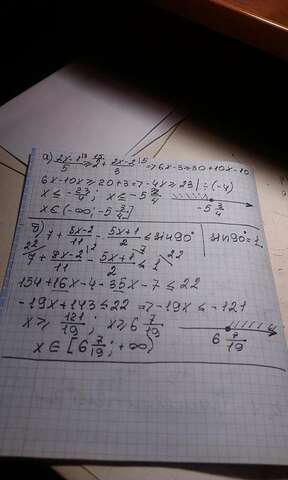 а) (2x-1)/5 ≥ 2 + (2x-2)/3 ⇒ 6x-3 ≥ 30+10x-10
6x-10x ≥ 20+3 ⇒ -4x ≥ 23 | ÷(-4)
x ≤ -23/4; x ≤ -5 3/4
-5 3/4
x ∈ (-∞; -5 3/4]
б) 7 + (8x-2)/11 - (5x+1)/2 ≤ sin90° | sin90° = 1
7 + (8x-2)/11 - (5x+1)/2 ≤ 1
154+16x-4-35x-7 ≤ 22
-19x+143 ≤ 22 ⇒ -19x ≤ -121
x ≥ 121/19; x ≥ 6 7/19
6 7/19
x ∈ [6 7/19; +∞)